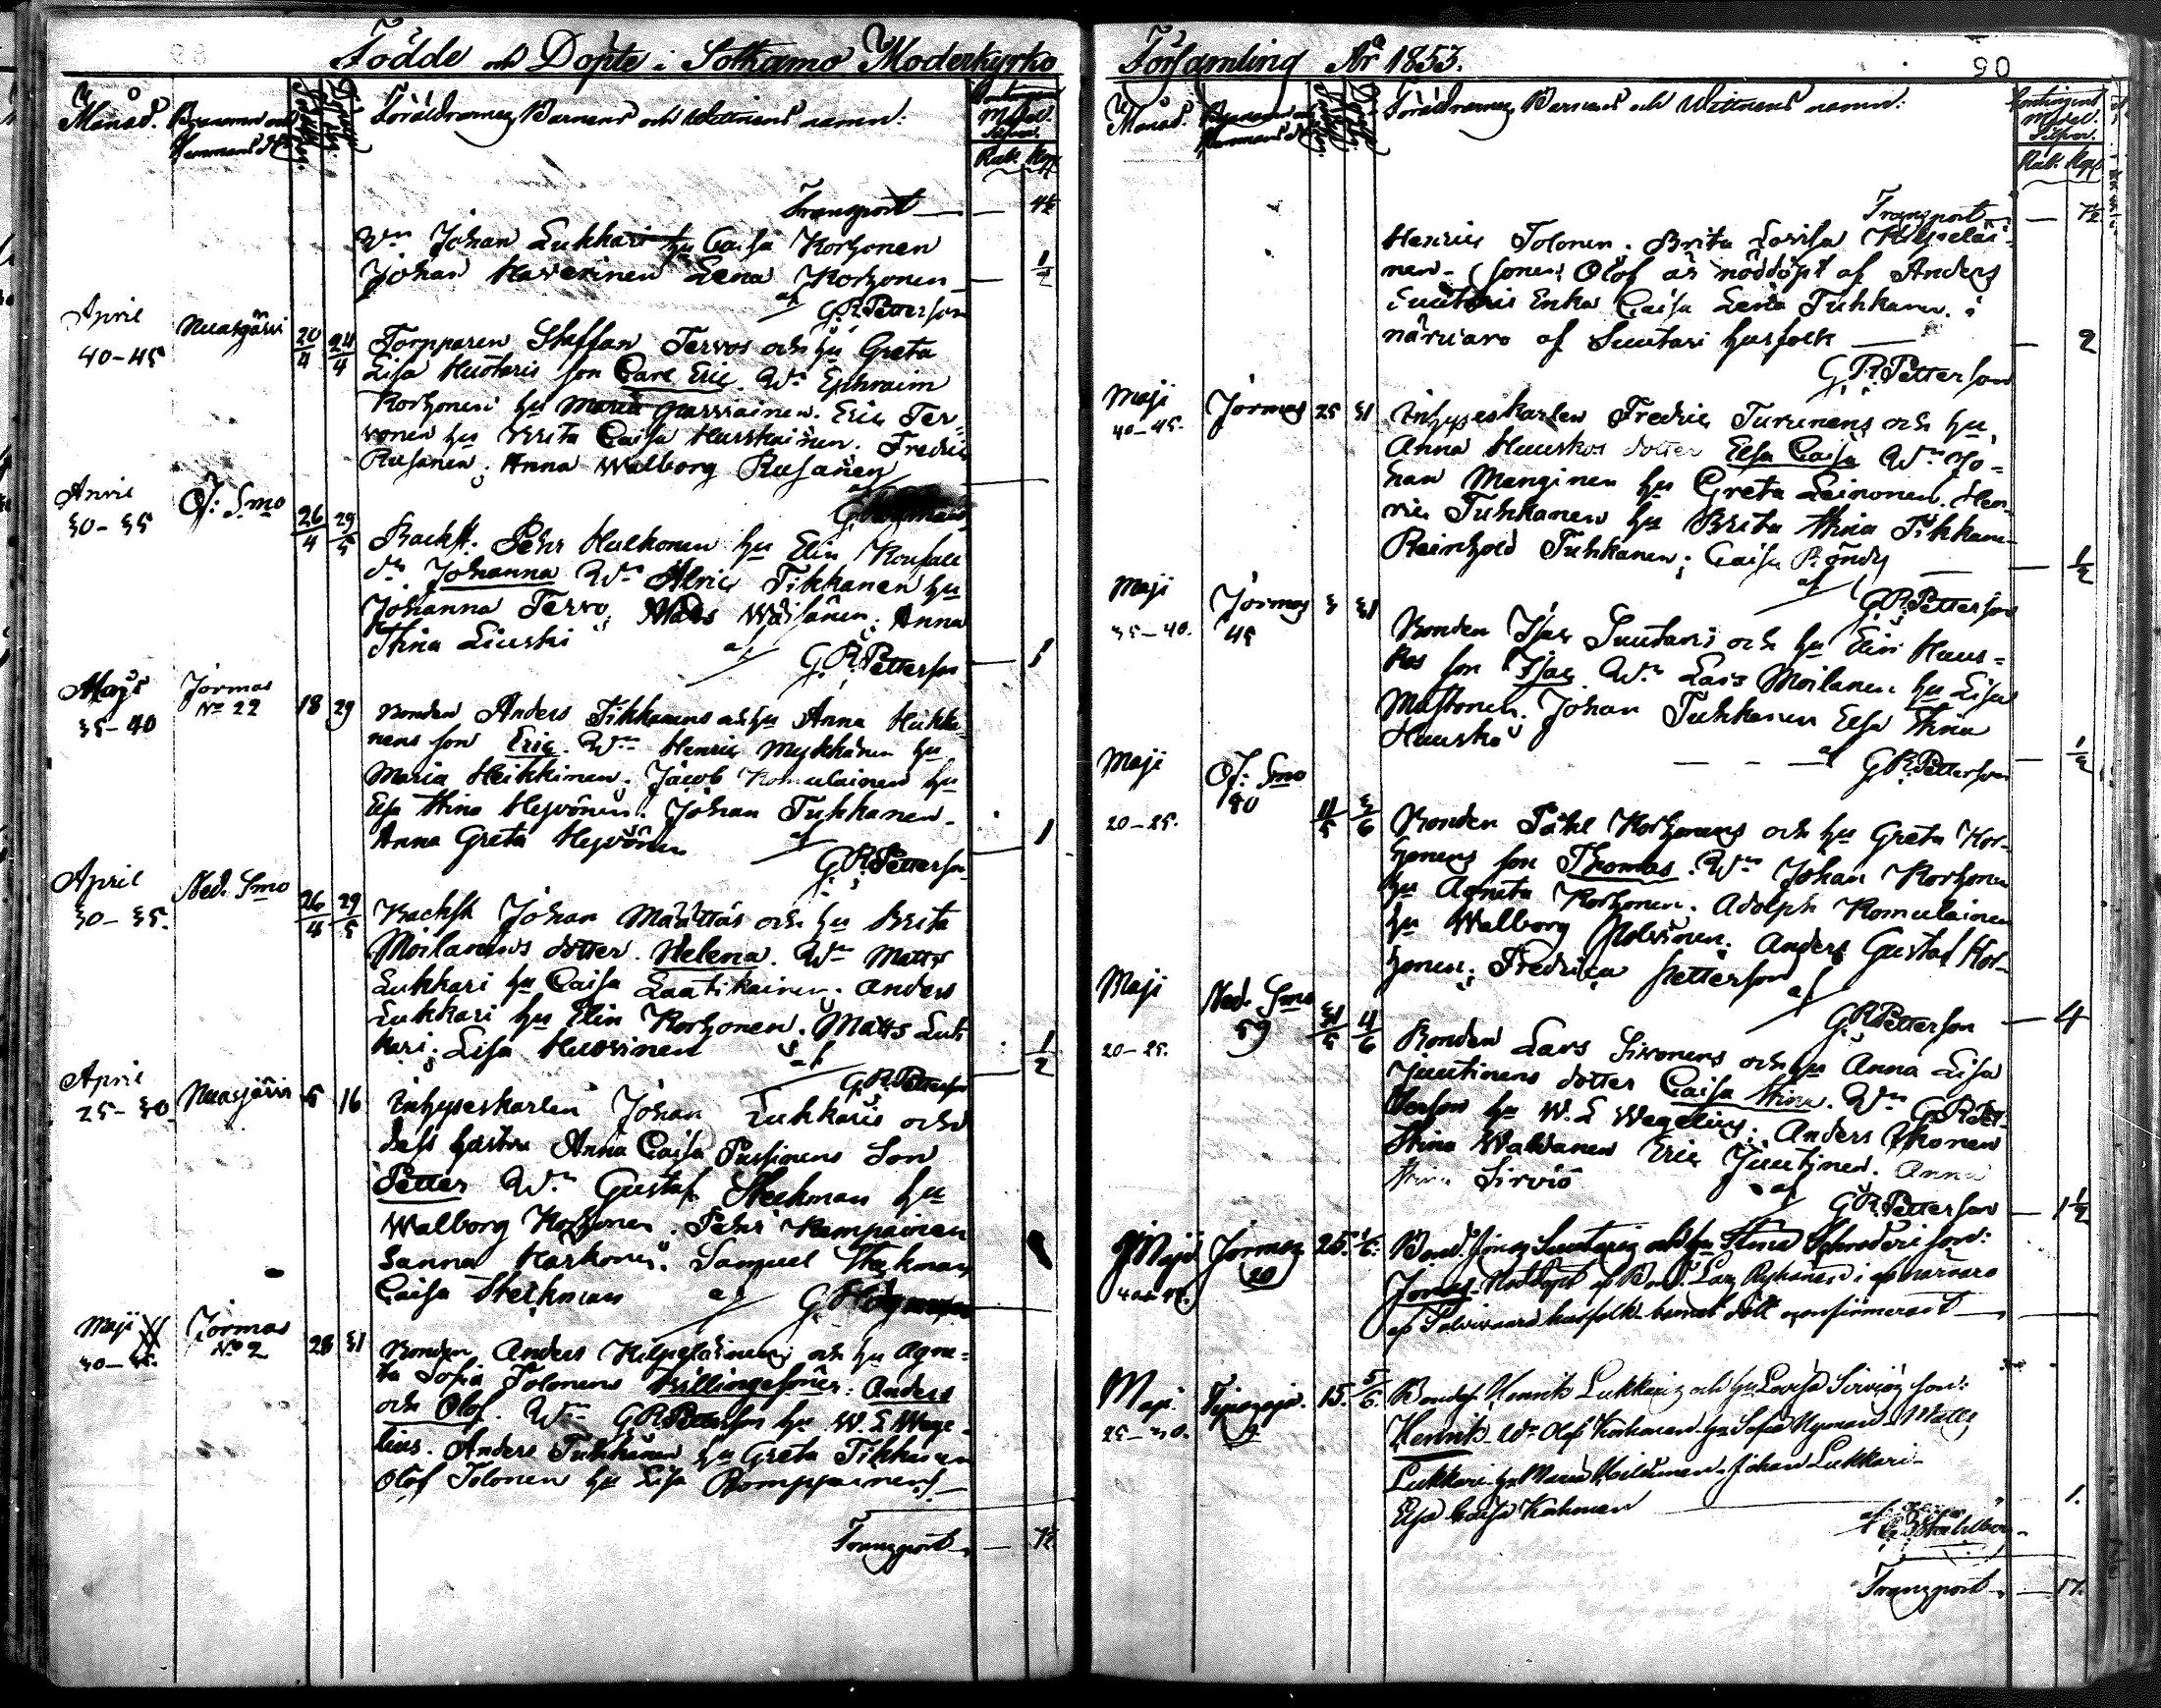 Födde och Döpte i Sotkamo Moderkyrko
Månad.
Föräldrarnes, Barnens och Wittnens namn:
Rub. Kop.
Transport — — 4½
Wn Johan Lukkari hu Caisa Korhonen
Johan Haverinen Lena Korhonen — ½
af G.R. Petterson
April Nuasjärvi 20/4 24/4 Torpparen Staffan Tervos och hu Greta
40-45 Lisa Huotaris son Carl Eric. Wn Ephraim
Korhonen hu Maria Parviainen. Eric Ter-
vonen hu Brita Caisa Hurskainen. Fredric
Rusanen. Anna Walborg Rusanen
af
April Of: Smo 26/4 29/5 Backst. Pehr Hulkonen hu Elin
30-35 dr. Johanna Wn Henric Tikkanen hu
Johanna Tervo. Mats Wäisänen. Anna
Stina Liuski af G.R. Petterson — 1
Maji Jormas No 22 18 29 Bonden Anders Tikkanens och hu Anna Heikki-
35-40 nens son Eric. Wn Henric Mykkänen hu
Maria Heikkinen. Jacob Komulainen hu
Elsa Stina Heyvönen. Johan Tuhkanen.
Anna Greta Heyvönen af — 1
G.R. Petterson
April Ned. Smo 26/4 29/5 Backst Johan Määttäs och hu Brita
30-35. Moilanens dotter. Helena. Wn Matts
Lukkari hu Caisa Laatikainen. Anders
Lukkari hu Elin Korhonen. Matts Luk-
kari. Lisa Huovinen af ½
G.R. Petterson
April Nuasjärvi 5 16 Inhyseskarlen Johan Lukkaris och
25-30 dess hustru Anna Caisa Passinens Son
Petter Wn Gustaf Steckman hu
Walborg Korhonen. Pehr Kemppainen
Sanna Karhonen. Samuel Steckman
Caisa Steckman af
Maji Jormas No 2 28 31 Bonden Anders Kilpeläinens och hu Agne-
ta Sofia Tolonens tvillingesöner: Anders
och Olof. Wn G.R. Petterson hu W. L Wege-
lius. Anders Tuhkanen hu Greta Tikkanen
Olof Tolonen hu Lisa Romppainen
Transport — — 7½
Församling År 1853.
90
Månad.
Föräldrarnes, Barnens och Wittnens namn:
Contingent Medel. Silfver.
Rub. Kop.
Transport — — 7½
Henric Tolonen. Brita Lovisa Kilpeläi-
nen. Sonen Olof är nöddöpt af Anders
Suutaris Enka Caisa Lena Tuhkanen. i
närvaro af Suutari husfolk — — 2
G.R. Petterson
Maji Jormas 25 31 Inhyseskarlen Fredric Turunens och hu
40-45. Anna Huuskos dotter Elsa Caisa Wn Jo-
han Manginen hu Greta Leinonen. Hen-
ric Tuhkanen hu Brita Stina Tikkanen
Reinhold Tuhkanen; Caisa Röndy — ½
af G.R. Petterson
Maji Jormas 45 3 31 Bonden Isac Suutaris och hu Elin Huus-
35-40. kos son Isac Wn Lars Moilanen hu Lisa
Mustonen. Johan Tuhkanen Elsa Stina
Huusko — — — af — ½
G.R. Petterson
Maji Of: Smo 11/5 3/6 Bonden Påhl Korhonens och hu Greta Kor-
20-25. honens son Thomas. Wn Johan Korhonen
hu Agneta Korhonen. Adolph Komulainen
hu Walborg Polvinen. Anders Gustaf Kor-
honen; Fredrica Petterson
af G.R. Petterson — 4
Maji Ned. Smo 59 31/5 4/6 Bonden Lars Sirvonens och hu Anna Lisa
20-25. Juutinens dotter Caisa Stina. Wn G.R. Pet-
terson hu W. L Wegelius; Anders
Stina Waldanen Eric Juutinen. Anna
Stina Sirviö af
G.R. Petterson — 1½
Maji Jormas 20 25. 1/6. Bond. Jonas Suutaris och hu Stina Schroderi son:
Jonas. Nöddöpt af Bond. Lars i af närvaro
af husfolk. barnet dött
Maji. 15. 5/6. Bonden Henrik Lukkaris och hu Lovisa Sirviös son:
25-30. Henrik. Wn Olof Korhonen hu Sofia Nyman. Matts
Lukkari. hu Maria Moilanen. Johan Lukkari.
Elsa Caisa Korhonen — 1.
Transport. — 17.